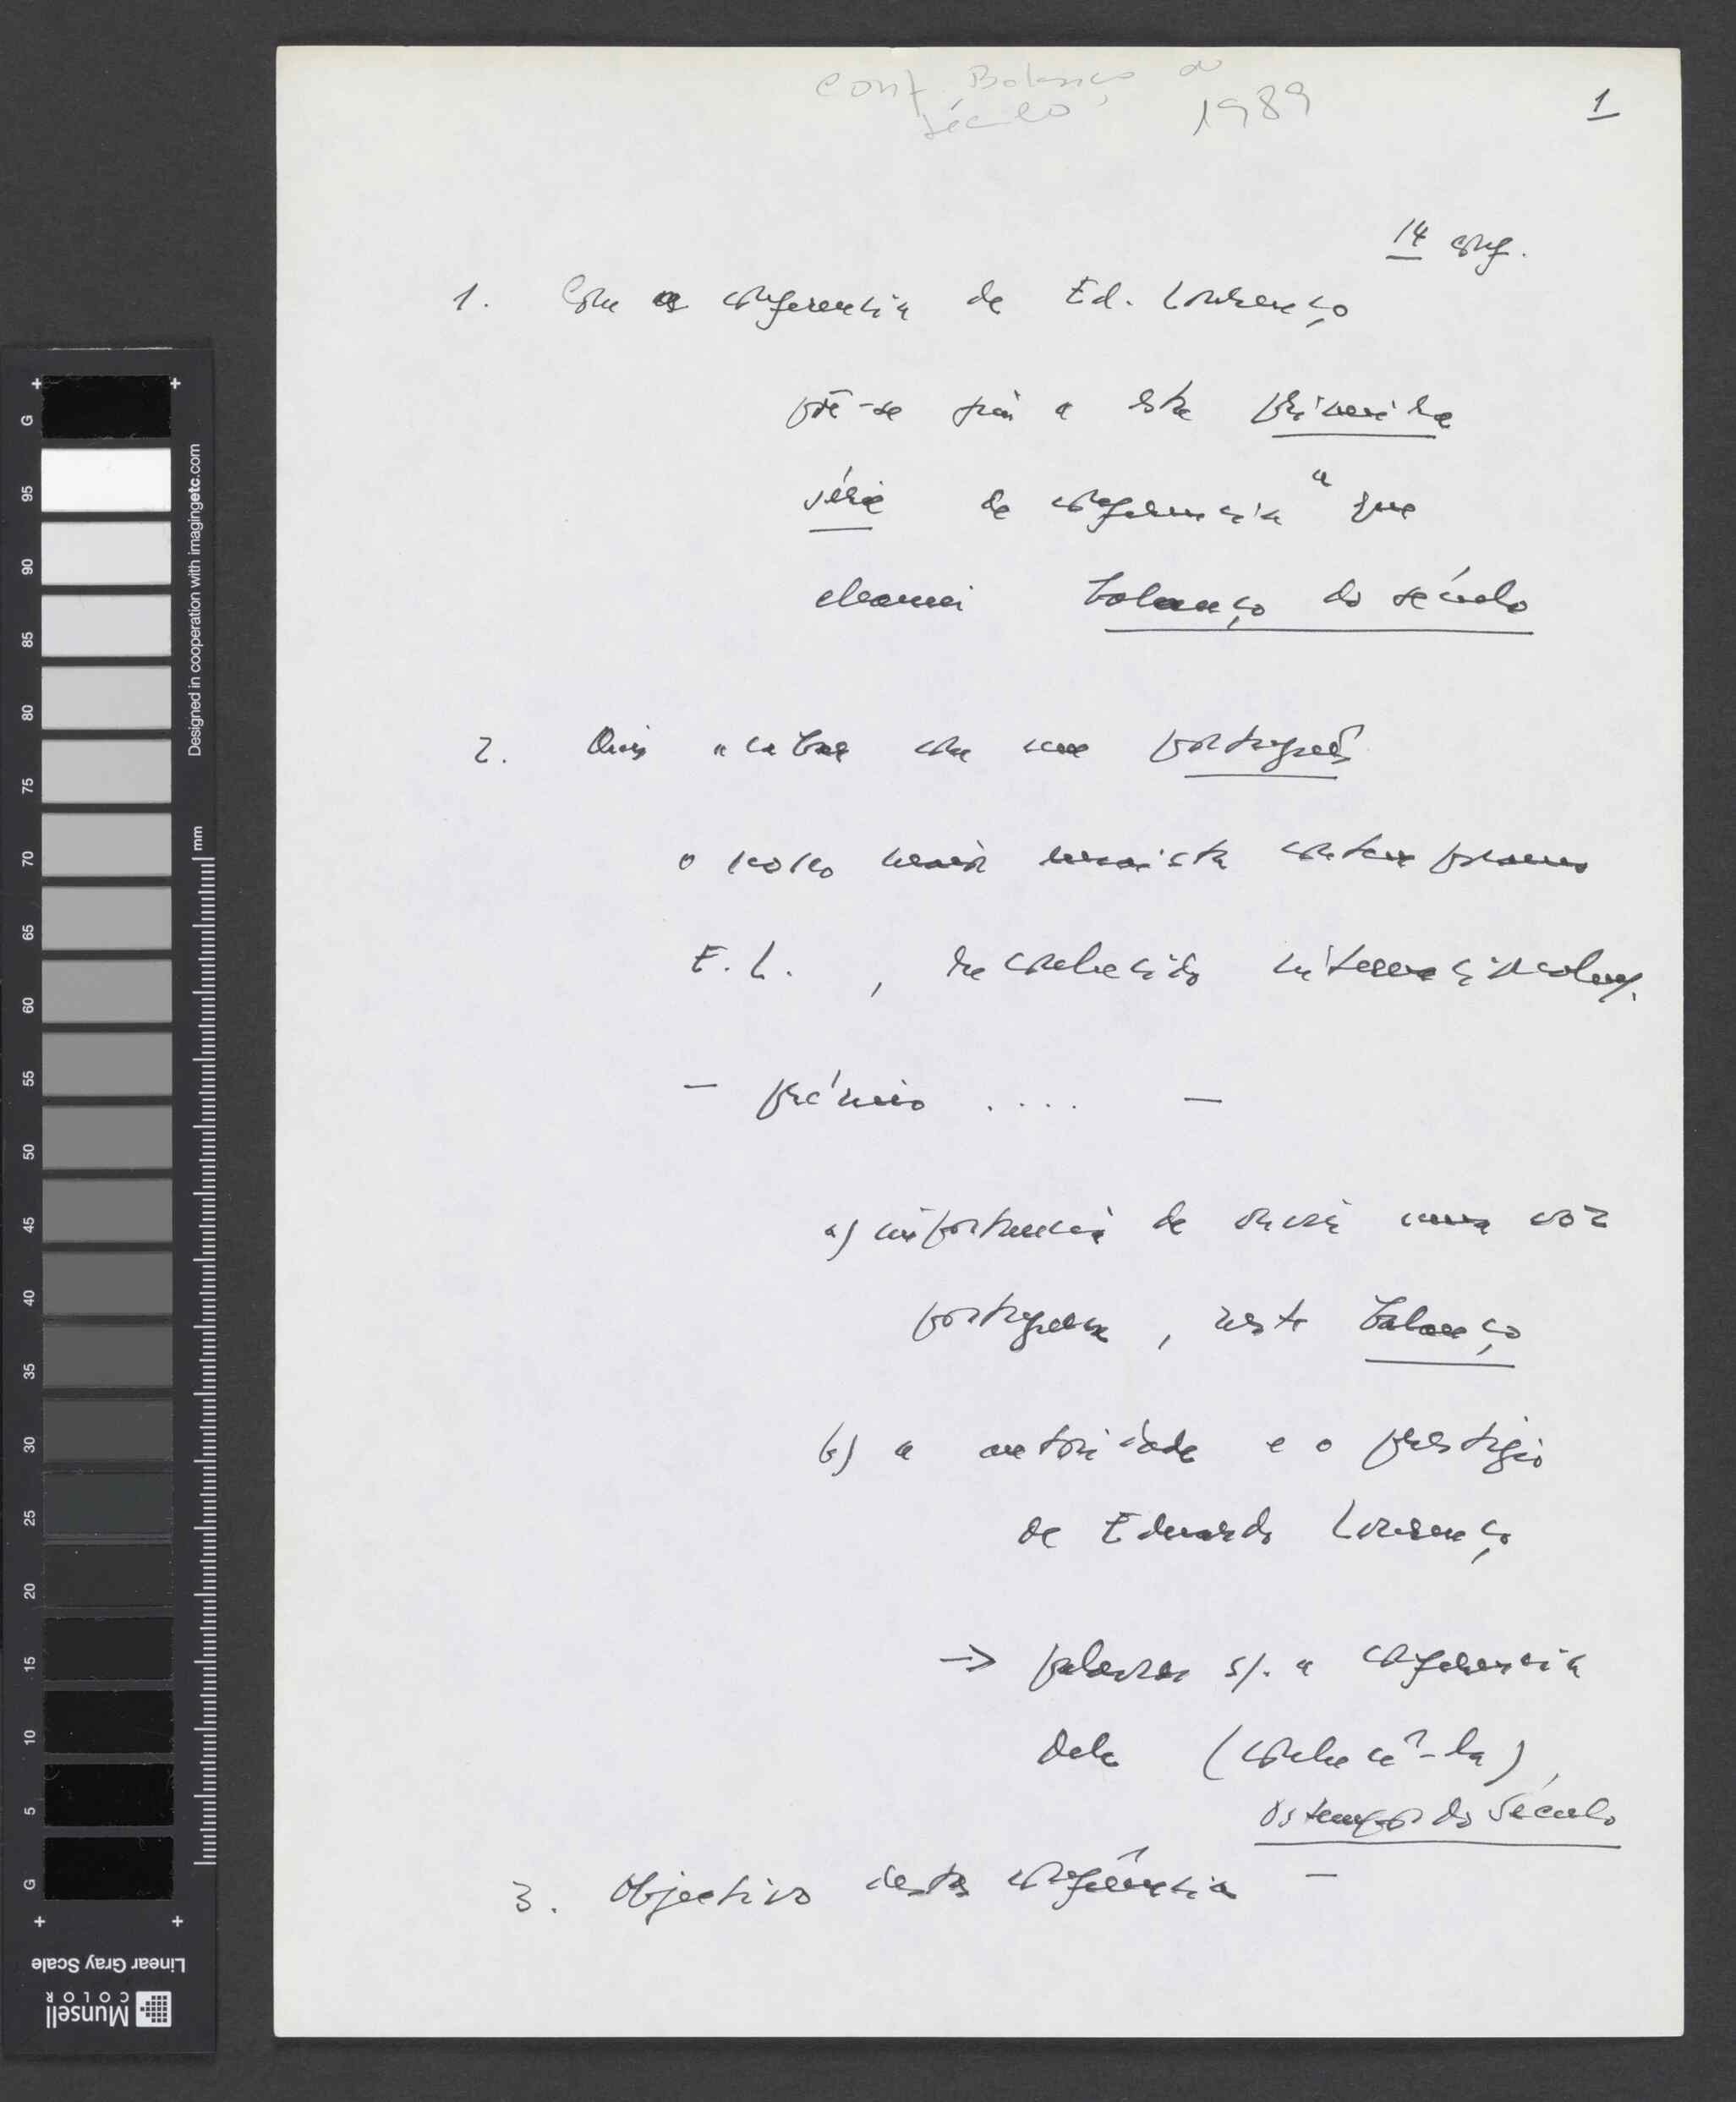 Conf. Balanço do
século, 1989
1
14 conf.
1. Com a conferencia de Ed. Lourenço
põe-se fim a esta primeira
série de conferencias a que
chamei balanço do século
2. Quis acabar com um português
o nosso maior ensaista contemporaneo
E. L. , reconhecido internacionalm.
— prémio .... —
a) importancia de ouvir uma voz
portuguesa, neste balanço
b) a autoridade e o prestigio
de Eduardo Lourenço
→ palavras s/. a conferencia
dele (conhecê-la),
Os tempos do Século
3. Objectivo destas conferências —
G
95
90
85
80
75
70
65
60
55
50
45
40
35
30
25
20
15
10
5
G
mm
Designed in cooperation with imagingetc.com
Linear Gray Scale
Munsell
COLOR